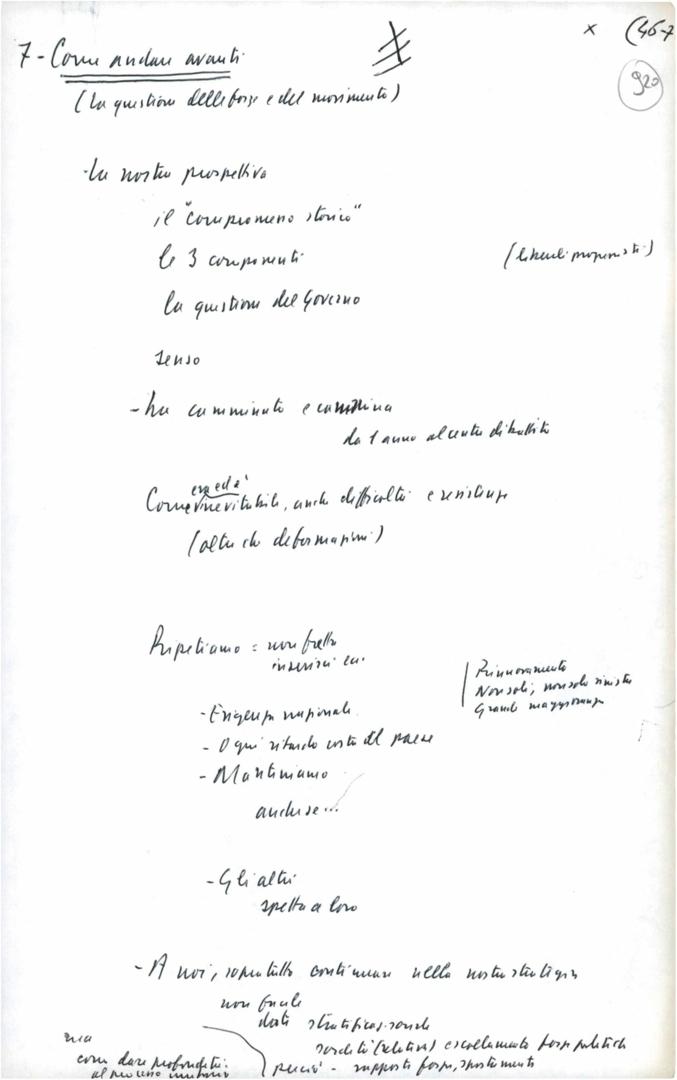 x (46-7
920
7 - Come andare avanti
(La questione delle forze e del movimento)
- La nostra prospettiva
il "compromesso storico"
le 3 componenti
la questione del Governo
senso
- ha camminato e cammina
da 1 anno al centro dibattito
era ed è
Come inevitabile, anche difficoltà e resistenze
(oltre che deformazioni)
Ripetiamo = non fretta
inserirci
Rinnovamento
Non soli, non solo sinistre
Grande maggioranza
- Esigenza nazionale
- Ogni ritardo costa al paese
- Manteniamo
anche se...
- Gli altri
spetta a loro
- A noi, soprattutto continuare nella nostra strategia
non facile
date stratificaz. sociale
scollamento forze politiche
perciò - rapporti forze, spostamenti
ma
come dare profondità
al processo unitario